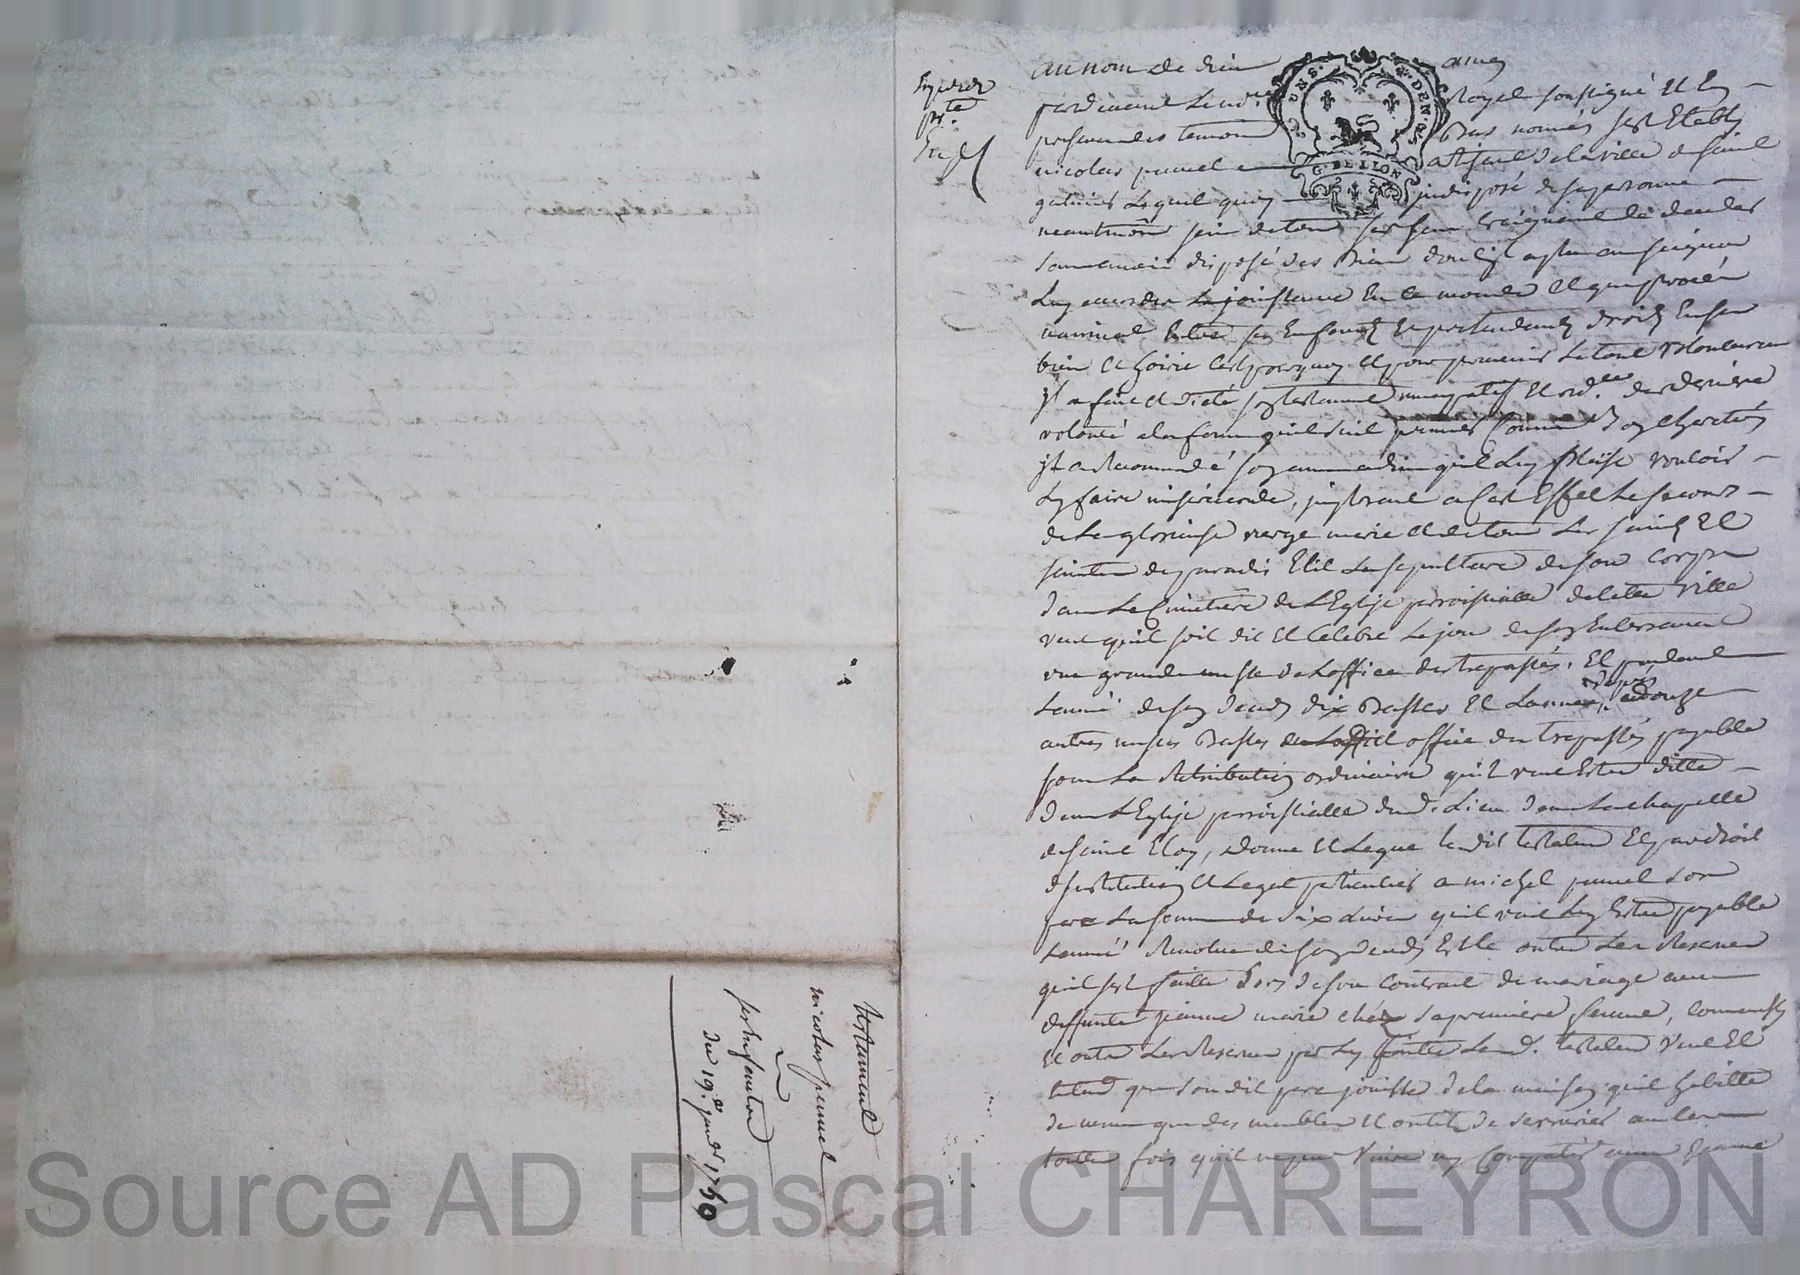 au nom de dieu amen
Expédié
pardevant Le no.re Royal soussigné Et En
présence des temoins Bas nommés sest Etably
nicolas prunel artisant de la ville de saint
galmier Lequel quoy indisposé de sa personne
neantmoins sein de tous ses sens craignant de deceder
sans avoir disposé des Biens dont il a plu au seigneur
Luy accorder La jouissance En ce monde Et que procès
mariné Entre ses Enfants Et pretendants droits En ses
biens Et hoirie c'est pourquoy Et pour prevenir Le tout volontairem
jl a fait Et dicté son testament nuncupatif Et ord.ce de derniere
volonté a la forme quil suit premier Comme Bon chretien
jl a Recommandé son ame a dieu quil Luy plaise vouloir
Luy faire misericorde, jmplorant a Cet Effet Le secours
de La glorieuse vierge marie Et de tous Les saints Et
saintes de paradis Elit La sepulture de son corps
dans Le Cimetière de L'Eglise parroissialle de cette ville
veut quil soit dit Et Celebré Le jour de son Enterrement
une grande messe de L'office des trepassés, Et pendant
L'année de son deceds dix Basses Et L'année d'après douze
autres messes Basses de L'office office des trepassés payable
sous La Retribution ordinaire quil veut Estre dittes
dans L'Eglise parroissialle dud. Lieu dans La chapelle
de saint Eloy, donne Et Legue Le dit testateur Et par droit
d'institution Et Legat particulier a michel prunel son
pere La somme de dix Livres quil veut Luy Estre payable
L'année Revolue de son deceds Et Ce outre Les Reserves
quil s'est faitte Lors de son Contrait de mariage avec
deffunte jeanne marie chéz sa première femme, comm'aussy
Et outre Les Reserves par Luy faittes Led. testateur veut Et
Entend que son dit pere jouisse de la maison quil habitte
de meme que des meubles Et outils de serrurier au cas
toutes fois quil ne peut vivre En Compatir avec jeanne
testament
nicolas prunel
du 19.e janver 1769
Source AD Pascal CHAREYRON
G. BELLON